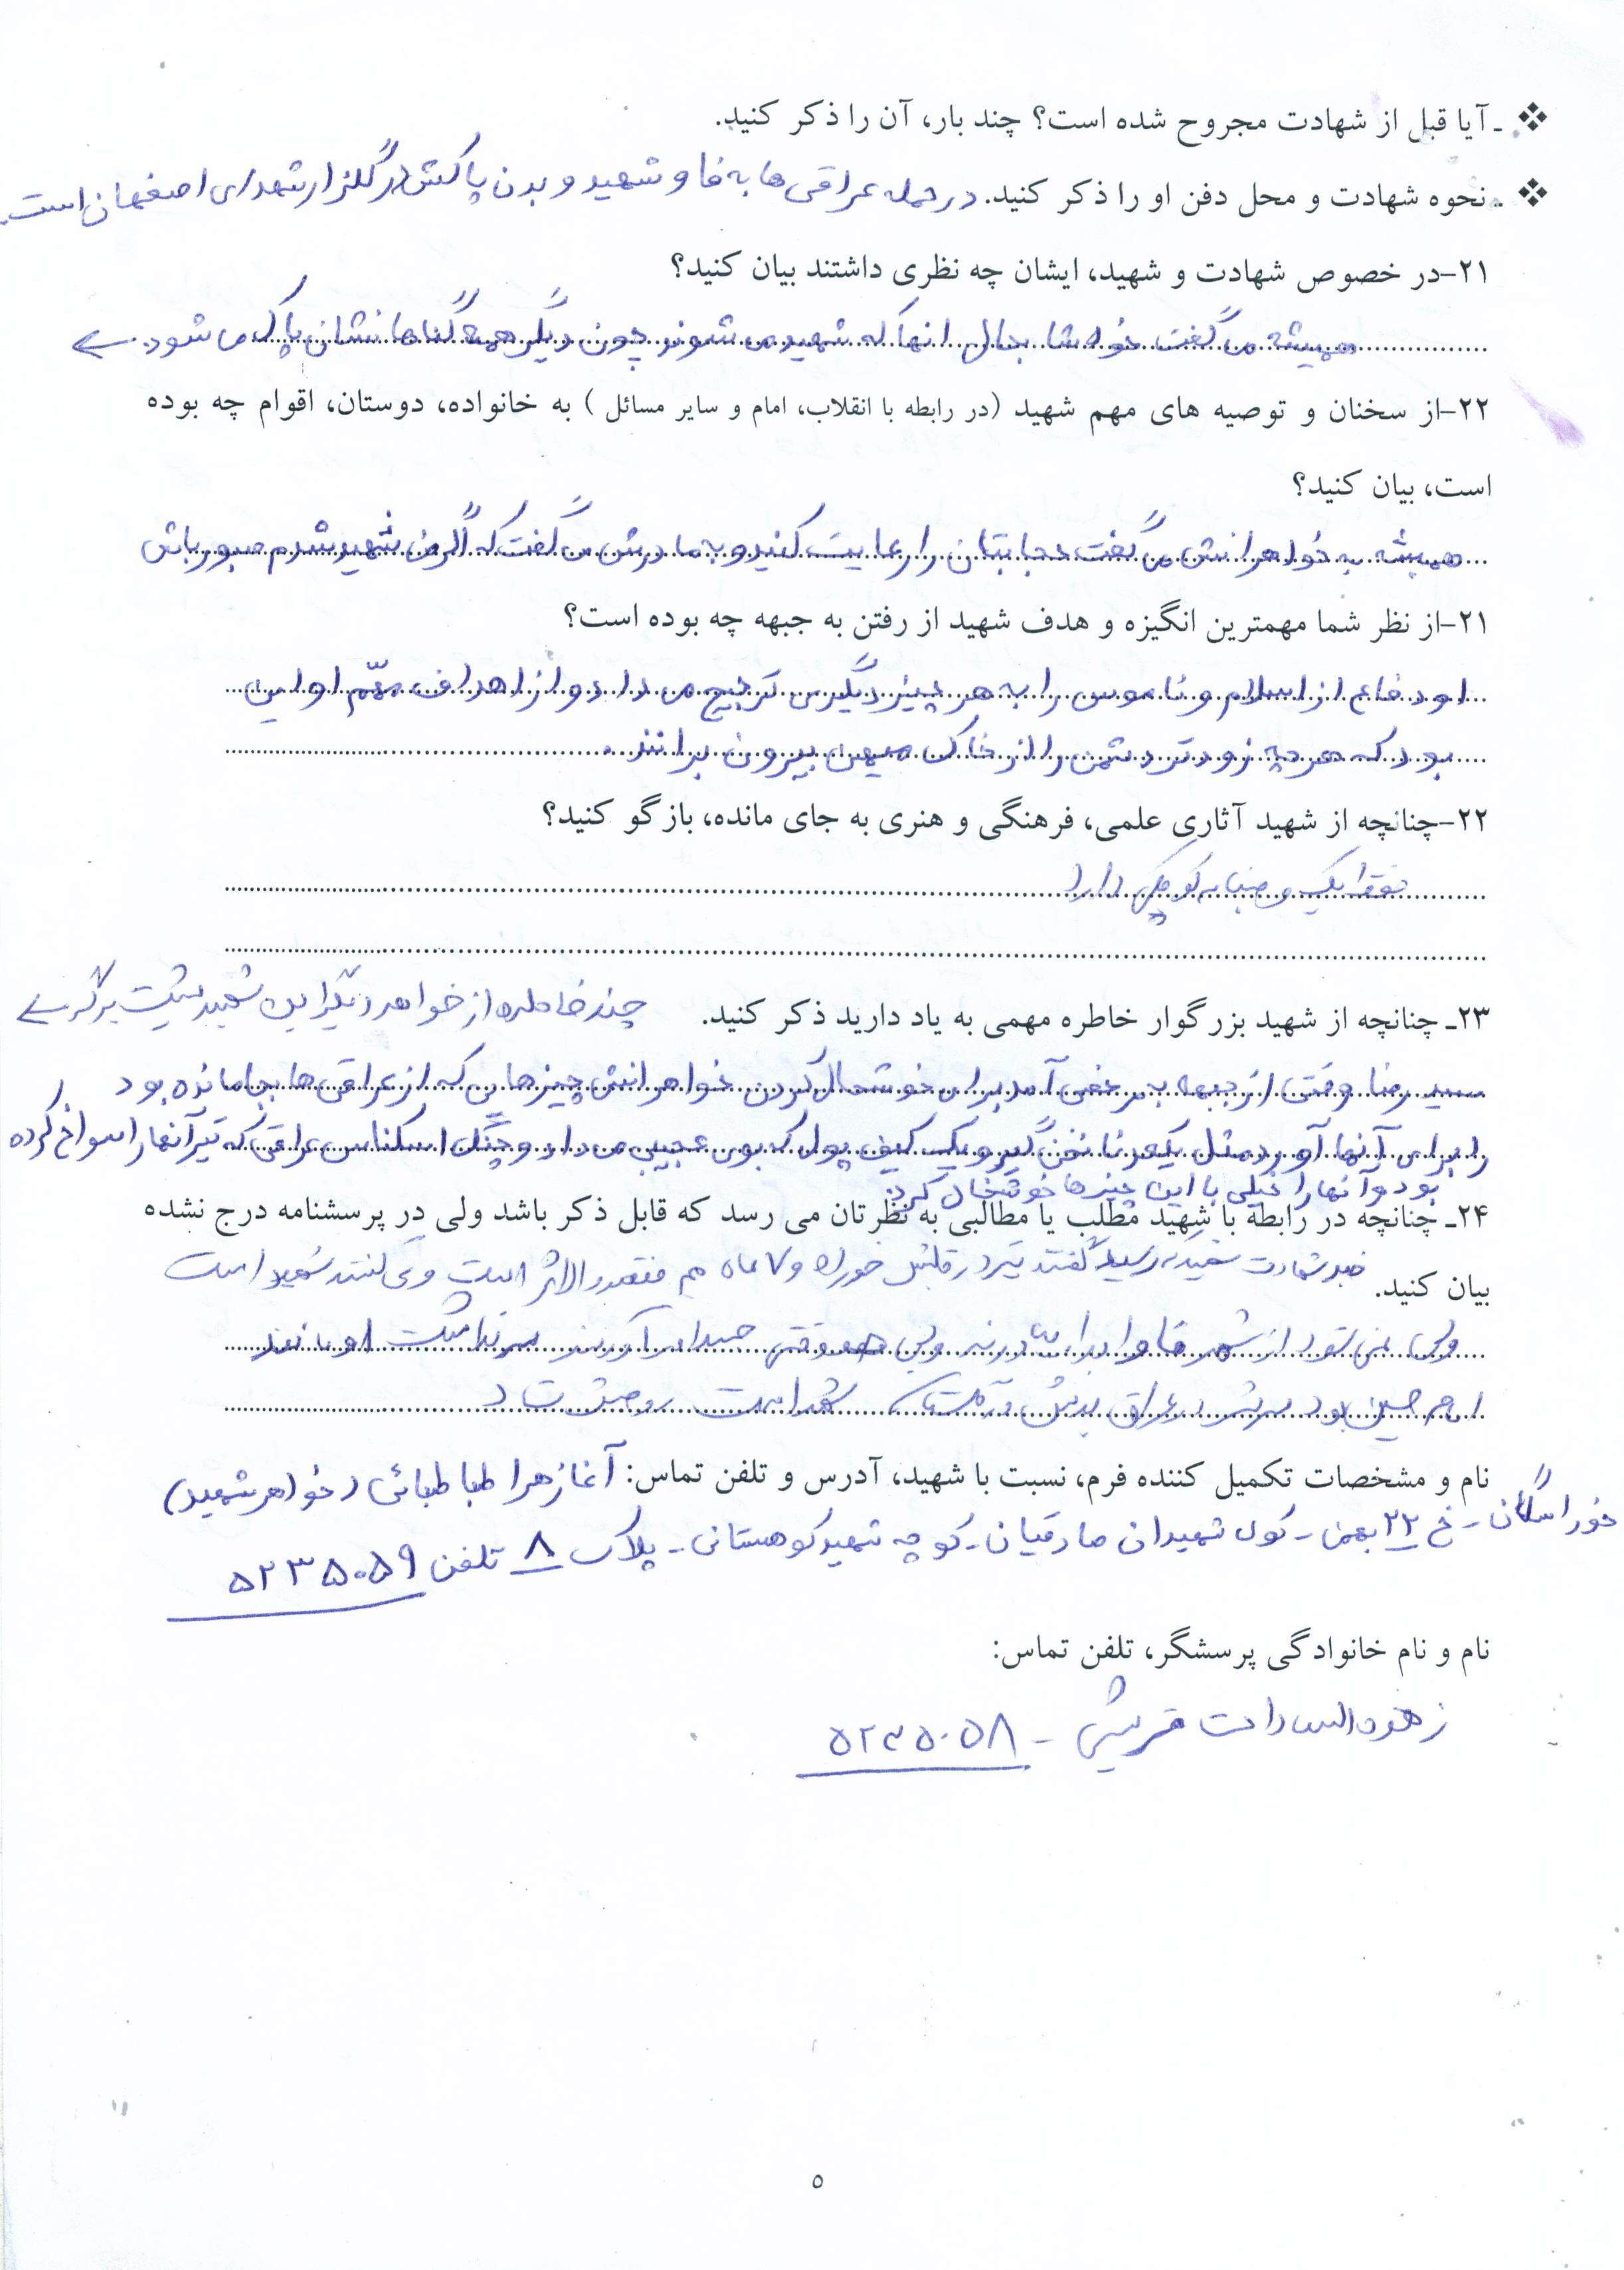 ❖ ـ آیا قبل از شهادت مجروح شده است؟ چند بار، آن را ذکر کنید.
❖ ـ نحوه شهادت و محل دفن او را ذکر کنید. در حمله عراقی ها به فاو شهید و بدن پاکش در گلزار شهدای اصفهان است.
۲۱-در خصوص شهادت و شهید، ایشان چه نظری داشتند بیان کنید؟
همیشه می گفت خوشا بحال انها که شهید می شوند چون دیگر همه گناهانشان پاک می شود.
۲۲-از سخنان و توصیه های مهم شهید (در رابطه با انقلاب، امام و سایر مسائل ) به خانواده، دوستان، اقوام چه بوده
است، بیان کنید؟
همیشه به خواهرانش می گفت حجابتان را رعایت کنید و به مادرش می گفت که اگر من شهید شدم صبور باش
۲۱-از نظر شما مهمترین انگیزه و هدف شهید از رفتن به جبهه چه بوده است؟
او دفاع از اسلام و ناموس را به هر چیز دیگری ترجیح می داد و از اهداف مهّم او این
بود که هرچه زودتر دشمن را از خاک میهن بیرون برانند.
۲۲-چنانچه از شهید آثاری علمی، فرهنگی و هنری به جای مانده، بازگو کنید؟
فقط یک وصیتنامه کوچکی دارد
۲۳ـ چنانچه از شهید بزرگوار خاطره مهمی به یاد دارید ذکر کنید. چند خاطره از خواهر دیگر این شهید پشت برگه
سید رضا وقتی از جبهه به مرخصی آمد برای خوشحال کردن خواهرانش چیزهایی که از عراقی ها بجا مانده بود
را برای آنها آورد مثل یک ناخن گیر و یک کیف پول که بوی عجیبی می داد و چند اسکناس عراقی که تیر آنها را سوراخ کرده
بود و آنها را خیلی با این چیزها خوشحال کرد.
۲۴ـ چنانچه در رابطه با شهید مطلب یا مطالبی به نظرتان می رسد که قابل ذکر باشد ولی در پرسشنامه درج نشده
بیان کنید. خبر شهادت شهید که رسید گفتند تیر در قلبش خورده و ۷ ماه هم مفقودالاثر است و می گفتند شهید است
ولی نمی شود از شهر فاو او را بیاورند ولی وقتی جسد او را آوردند سر نداشت او مانند
امام حسین بود سرش در عراق بدنش در گلستان شهدا است روحش شاد
نام و مشخصات تکمیل کننده فرم، نسبت با شهید، آدرس و تلفن تماس: آغازهرا طباطبائی (خواهر شهید)
خوراسگان - خ ۲۲ بهمن - کوی شهیدان صادقیان - کوچه شهید کوهستانی - پلاک ۸ تلفن ۵۲۳۵۰۵۹
نام و نام خانوادگی پرسشگر، تلفن تماس:
زهره السادات قریشی - ۵۲۳۵۰۵۸
۵